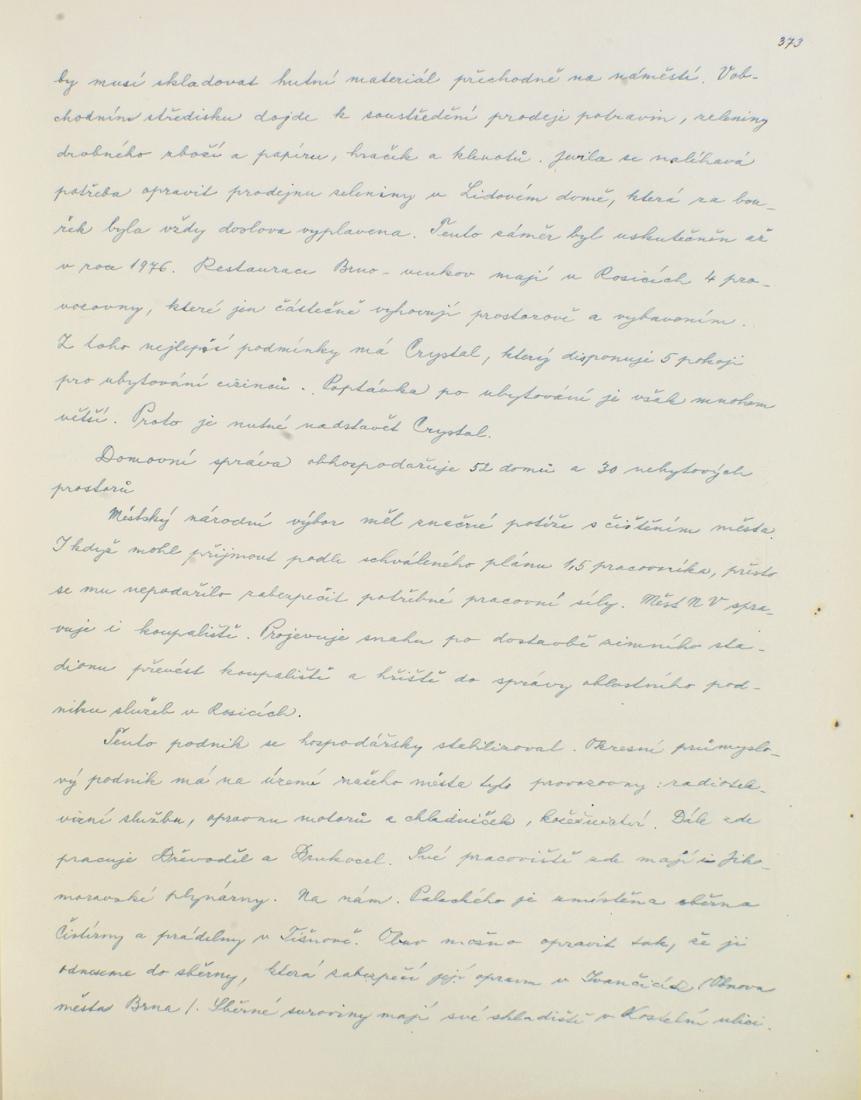 373
by musí skladovat hutní materiál přechodně na náměstí. V ob-
chodním středisku dojde k soustředění prodeje potravin, zeleniny
drobného zboží a papíru, hraček a klenotů. Jevila se naléhavá
potřeba opravit prodejnu zeleniny v Lidovém domě, která za bou-
řek byla vždy doslova vyplavena. Tento záměr byl uskutečněn až
v roce 1976. Restaurace Brno-venkov mají v Rosicích 4 pro-
vozovny, které jen částečně vyhovují prostorově a vybavením.
Z toho nejlepší podmínky má Crystal, který disponuje 5 pokoji
pro ubytování cizinců. Poptávka po ubytování je však mnohem
větší. Proto je nutné nadstavět Crystal.
Domovní správa obhospodařuje 52 domů a 30 nebytových
prostorů
Městský národní výbor měl značné potíže s čištěním města.
I když mohl přijmout podle schváleného plánu 1,5 pracovníka, přesto
se mu nepodařilo zabezpečit potřebné pracovní síly. Měst N V spra-
vuje i koupaliště. Projevuje snahu po dostavbě zimního sta-
dionu převést koupaliště a hřiště do správy oblastního pod-
niku služeb v Rosicích.
Tento podnik se hospodářsky stabilizoval. Okresní průmyslo-
vý podnik má na území našeho města tyto provozovny: radiotele-
vizní službu, opravnu motorů a chladniček, kožešnictví. Dále zde
pracuje Dřevoděl a Drukocel. Své pracoviště zde mají i Jiho-
moravské plynárny. Na nám. Palackého je umístěna sběrna
Čistírny a prádelny v Tišnově. Obuv možno opravit tak, že ji
odneseme do sběrny, která zabezpečí její opravu v Ivančicích /Obnova
města Brna/. Sběrné suroviny mají své skladiště v Kostelní ulici.